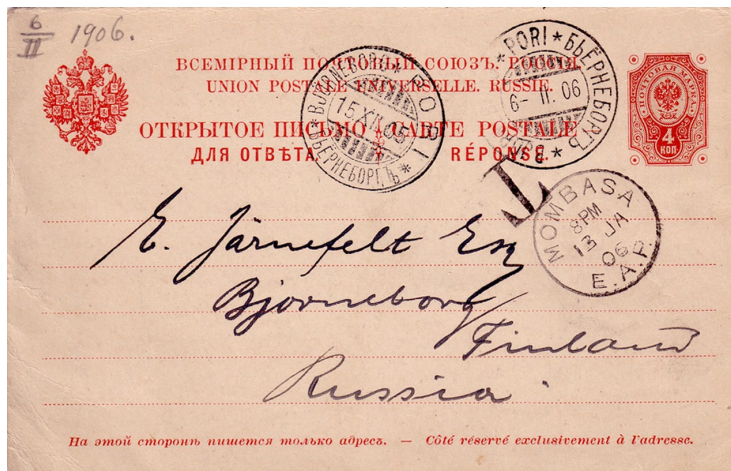 6/II 1906.
ВСЕМІРНЫЙ ПОЧТОВЫЙ СОЮЗЪ. РОССІЯ.
UNION POSTALE UNIVERSELLE. RUSSIE.
ОТКРЫТОЕ ПИСЬМО CARTE POSTALE
ДЛЯ ОТВѢТА. RÉPONSE.
BJÖRNEBORG * PORI * БЬЁРНЕБОРГЪ *
15.XII.05
* PORI * БЬЁРНЕБОРГЪ *
6- II. 06
ПОЧТОВАЯ МАРКА
4
КОП
T
MOMBASA
8PM
13 JA
06
E.A.P.
E. Järnefelt Esq
Björneborg
Finland
Russia.
На этой сторонѣ пишется только адресъ. — Côté réservé exclusivement à l'adresse.